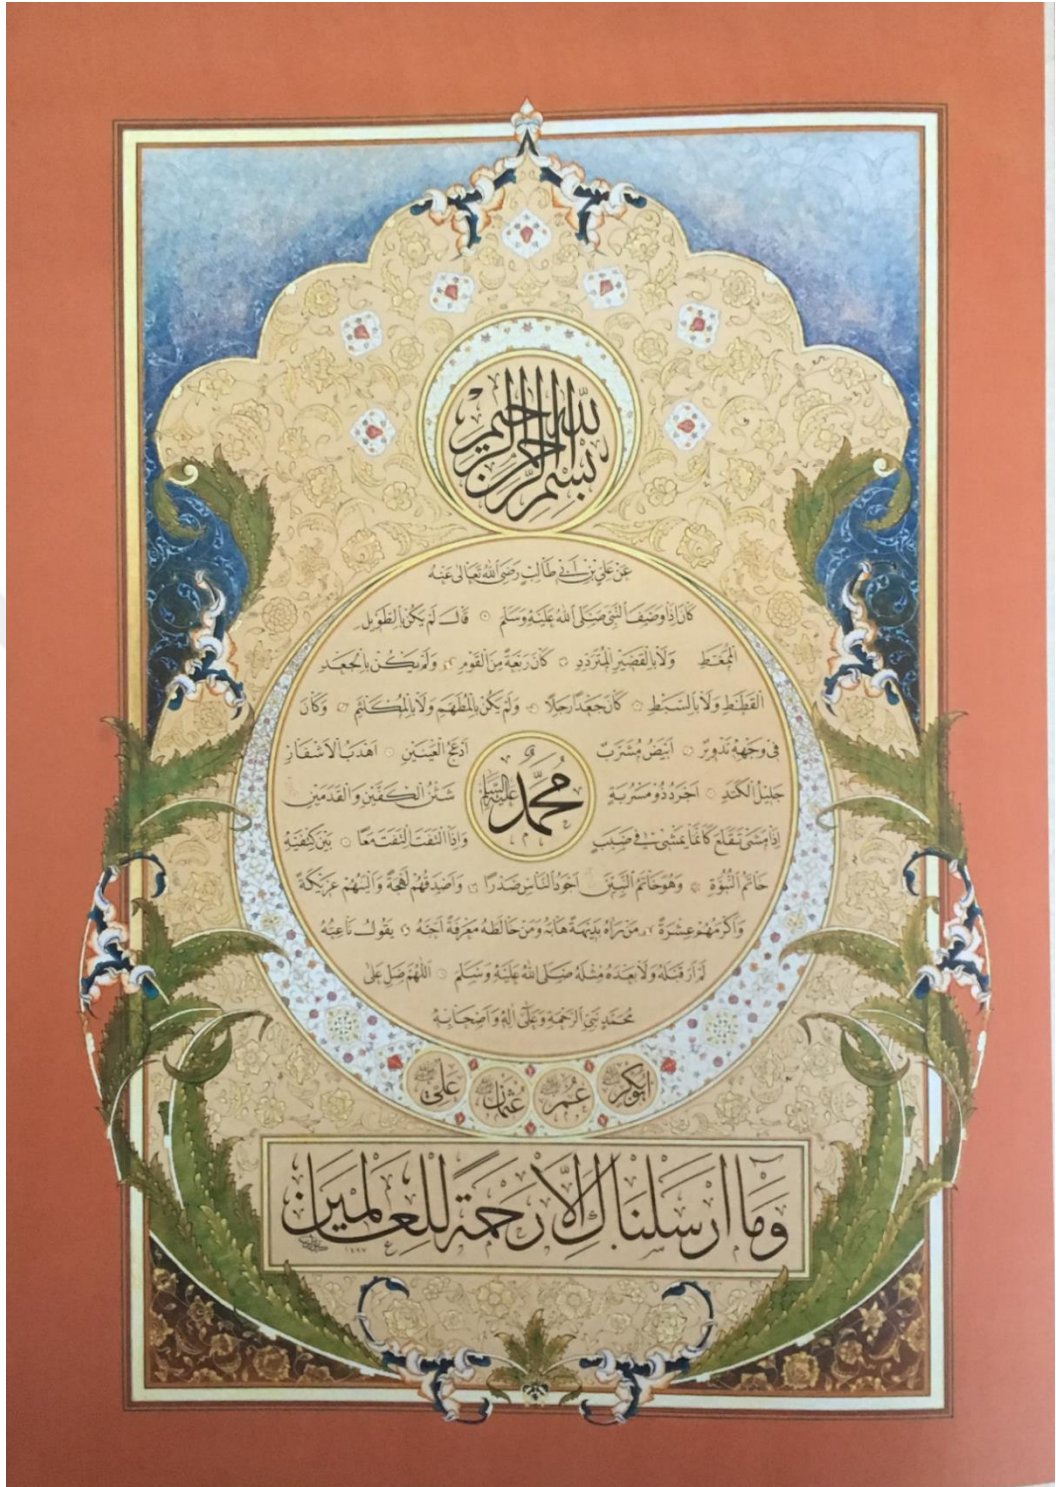 بسم الله الرحمن الرحيم
عَنْ عَلِيِّ بْنِ اَبِى طَالِبٍ رَضِىَ اللهُ تَعَالٰى عَنْهُ
كَانَ اِذَا وَصَفَ النَّبِىَّ صَلَّى اللهُ عَلَيْهِ وَسَلَّمَ قَالَ لَمْ يَكُنْ بِالطَّوِيلِ
الْمُمَغَّطِ وَلَا بِالْقَصِيرِ الْمُتَرَدِّدِ كَانَ رَبْعَةً مِنَ الْقَوْمِ وَلَمْ يَكُنْ بِالْجَعْدِ
الْقَطَطِ وَلَا بِالسَّبْطِ كَانَ جَعْدًا رَجِلًا وَلَمْ يَكُنْ بِالْمُطَهَّمِ وَلَا بِالْمُكَلْثَمِ وَكَانَ
فِى وَجْهِهِ تَدْوِيرٌ اَبْيَضُ مُشْرَبٌ اَدْعَجُ الْعَيْنَيْنِ اَهْدَبُ الْاَشْفَارِ
جَلِيلُ الْكَتَدِ اَجْرَدُ ذُو مَسْرُبَةٍ شَثْنُ الْكَفَّيْنِ وَالْقَدَمَيْنِ
محمد عليه السلام
اِذَا مَشٰى تَقَلَّعَ كَاَنَّمَا يَمْشِى فِى صَبَبٍ وَاِذَا الْتَفَتَ الْتَفَتَ مَعًا بَيْنَ كَتِفَيْهِ
خَاتَمُ النُّبُوَّةِ وَهُوَ خَاتَمُ النَّبِيِّنَ اَجْوَدُ النَّاسِ صَدْرًا وَاَصْدَقُهُمْ لَهْجَةً وَاَلْيَنُهُمْ عَرِيكَةً
وَاَكْرَمُهُمْ عِشْرَةً مَنْ رَاٰهُ بَدِيهَةً هَابَهُ وَمَنْ خَالَطَهُ مَعْرِفَةً اَحَبَّهُ يَقُولُ نَاعِتُهُ
لَمْ اَرَ قَبْلَهُ وَلَا بَعْدَهُ مِثْلَهُ صَلَّى اللهُ عَلَيْهِ وَسَلَّمَ اَللّٰهُمَّ صَلِّ عَلٰى
مُحَمَّدٍ نَبِىِّ الرَّحْمَةِ وَعَلٰى اٰلِهِ وَاَصْحَابِهِ
ابوبكر عمر عثمان علي
وَمَا اَرْسَلْنَاكَ اِلَّا رَحْمَةً لِلْعَالَمِينَ